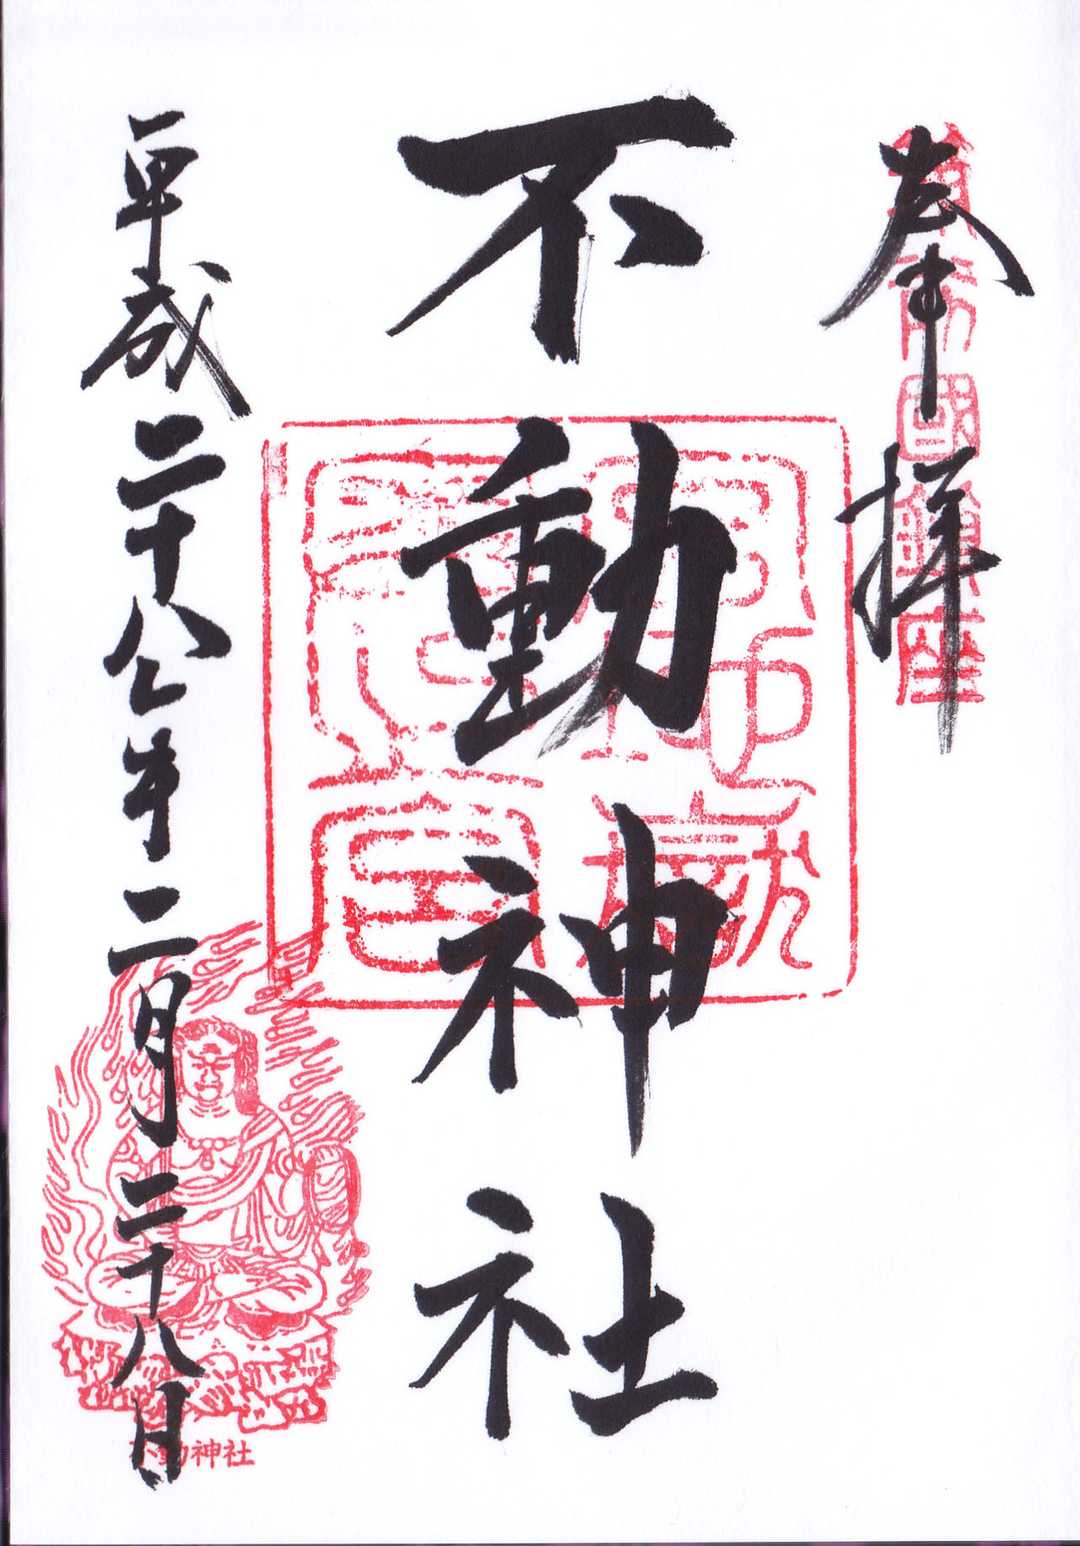 奉拝
國鎮座
不動神社
平成二十八年二月二十八日
不動神社